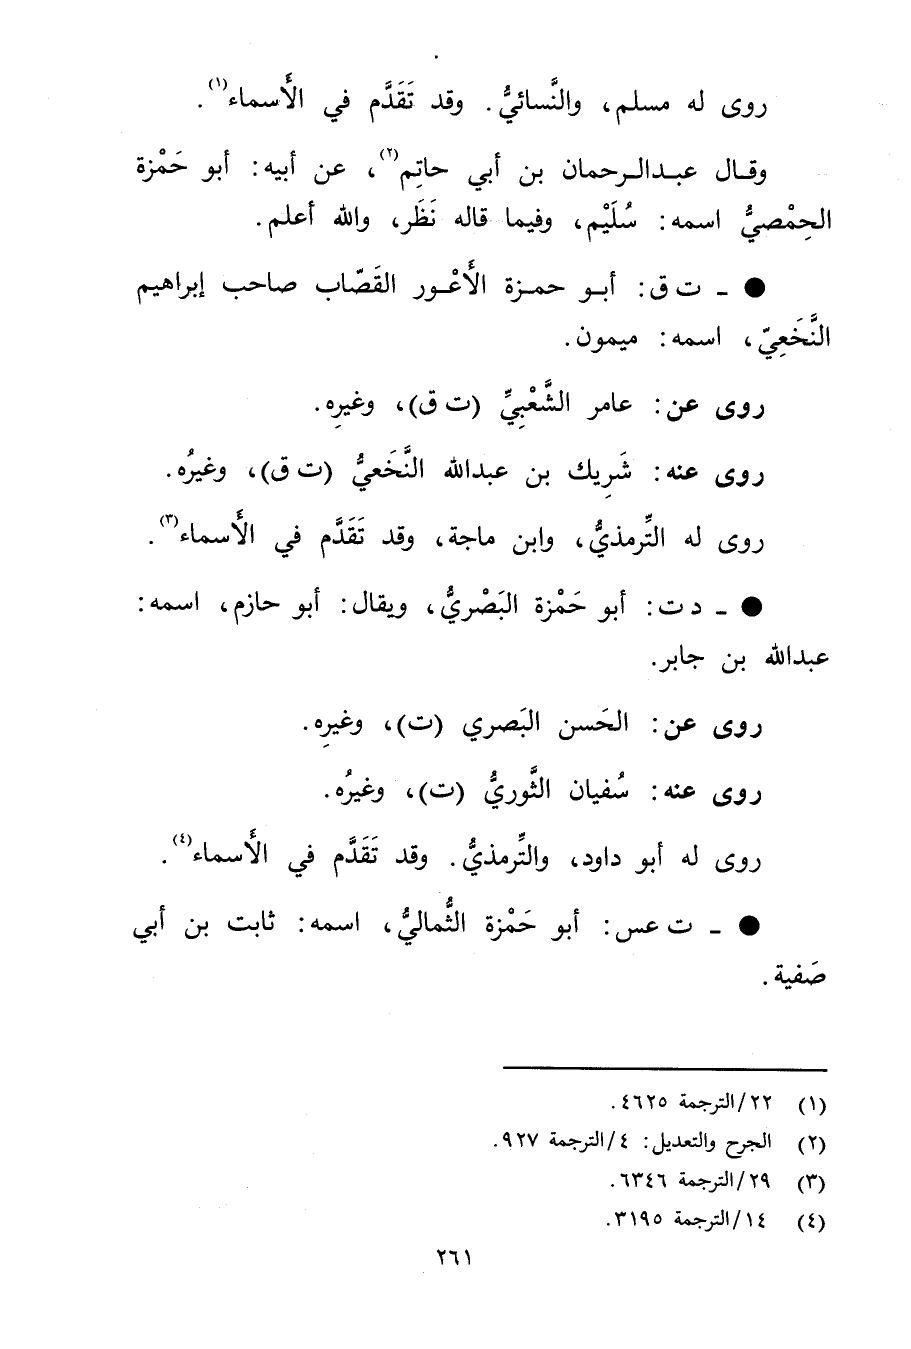 روى له مسلم، والنَّسائيُّ. وقد تَقَدَّم في الأَسماء(١).
وقال عبدالرحمان بن أبي حاتِم(٢)، عن أبيه: أبو حَمْزة
الحِمْصيُّ اسمه: سُلَيْم، وفيما قاله نَظَر، والله أعلم.
● ـ ت ق: أبو حمزة الأَعْور القَصّاب صاحب إبراهيم
النَّخَعِيّ، اسمه: ميمون.
روى عن: عامر الشَّعْبِيِّ (ت ق)، وغيرِه.
روى عنه: شَرِيك بن عبدالله النَّخَعيُّ (ت ق)، وغيرُه.
روى له التِّرمذيُّ، وابن ماجة، وقد تَقَدَّم في الأَسماء(٣).
● ـ د ت: أبو حَمْزة البَصْريُّ، ويقال: أبو حازم، اسمه:
عبدالله بن جابر.
روى عن: الحَسن البَصري (ت)، وغيرِه.
روى عنه: سُفيان الثَّوريُّ (ت)، وغيرُه.
روى له أبو داود، والتِّرمذيُّ. وقد تَقَدَّم في الأَسماء(٤).
● ـ ت عس: أبو حَمْزة الثُّماليُّ، اسمه: ثابت بن أبي
صَفية.
(١) ٢٢/الترجمة ٤٦٢٥.
(٢) الجرح والتعديل: ٤/الترجمة ٩٢٧.
(٣) ٢٩/الترجمة ٦٣٤٦.
(٤) ١٤/الترجمة ٣١٩٥.
٢٦١